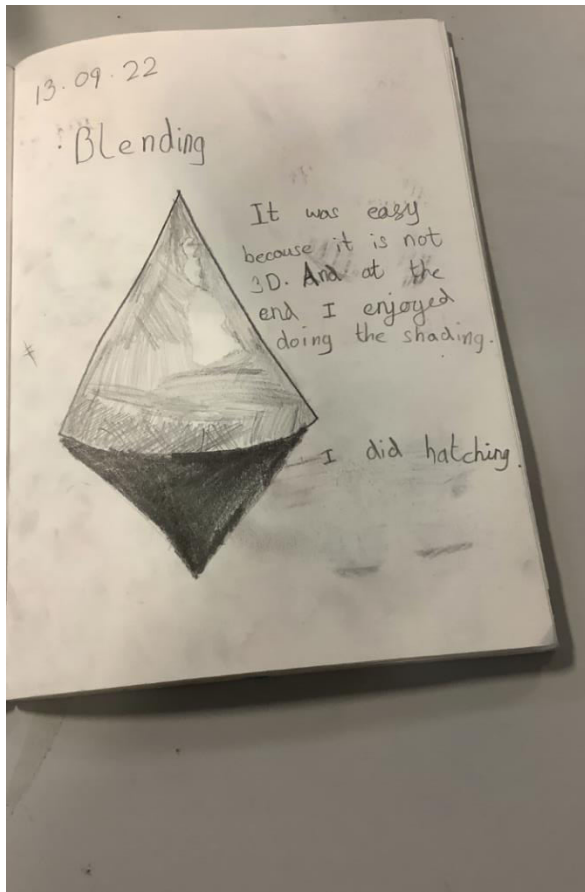 13.09.22
Blending
It was easy
because it is not
3D. And at the
end I enjoyed
doing the shading.
I did hatching.